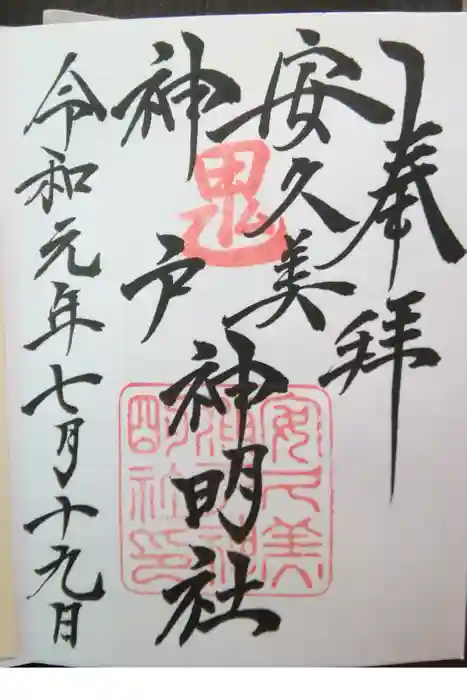 奉拝
安久美
神戸
神明社
鬼
安久美
神戸神
明社印
令和元年七月十九日